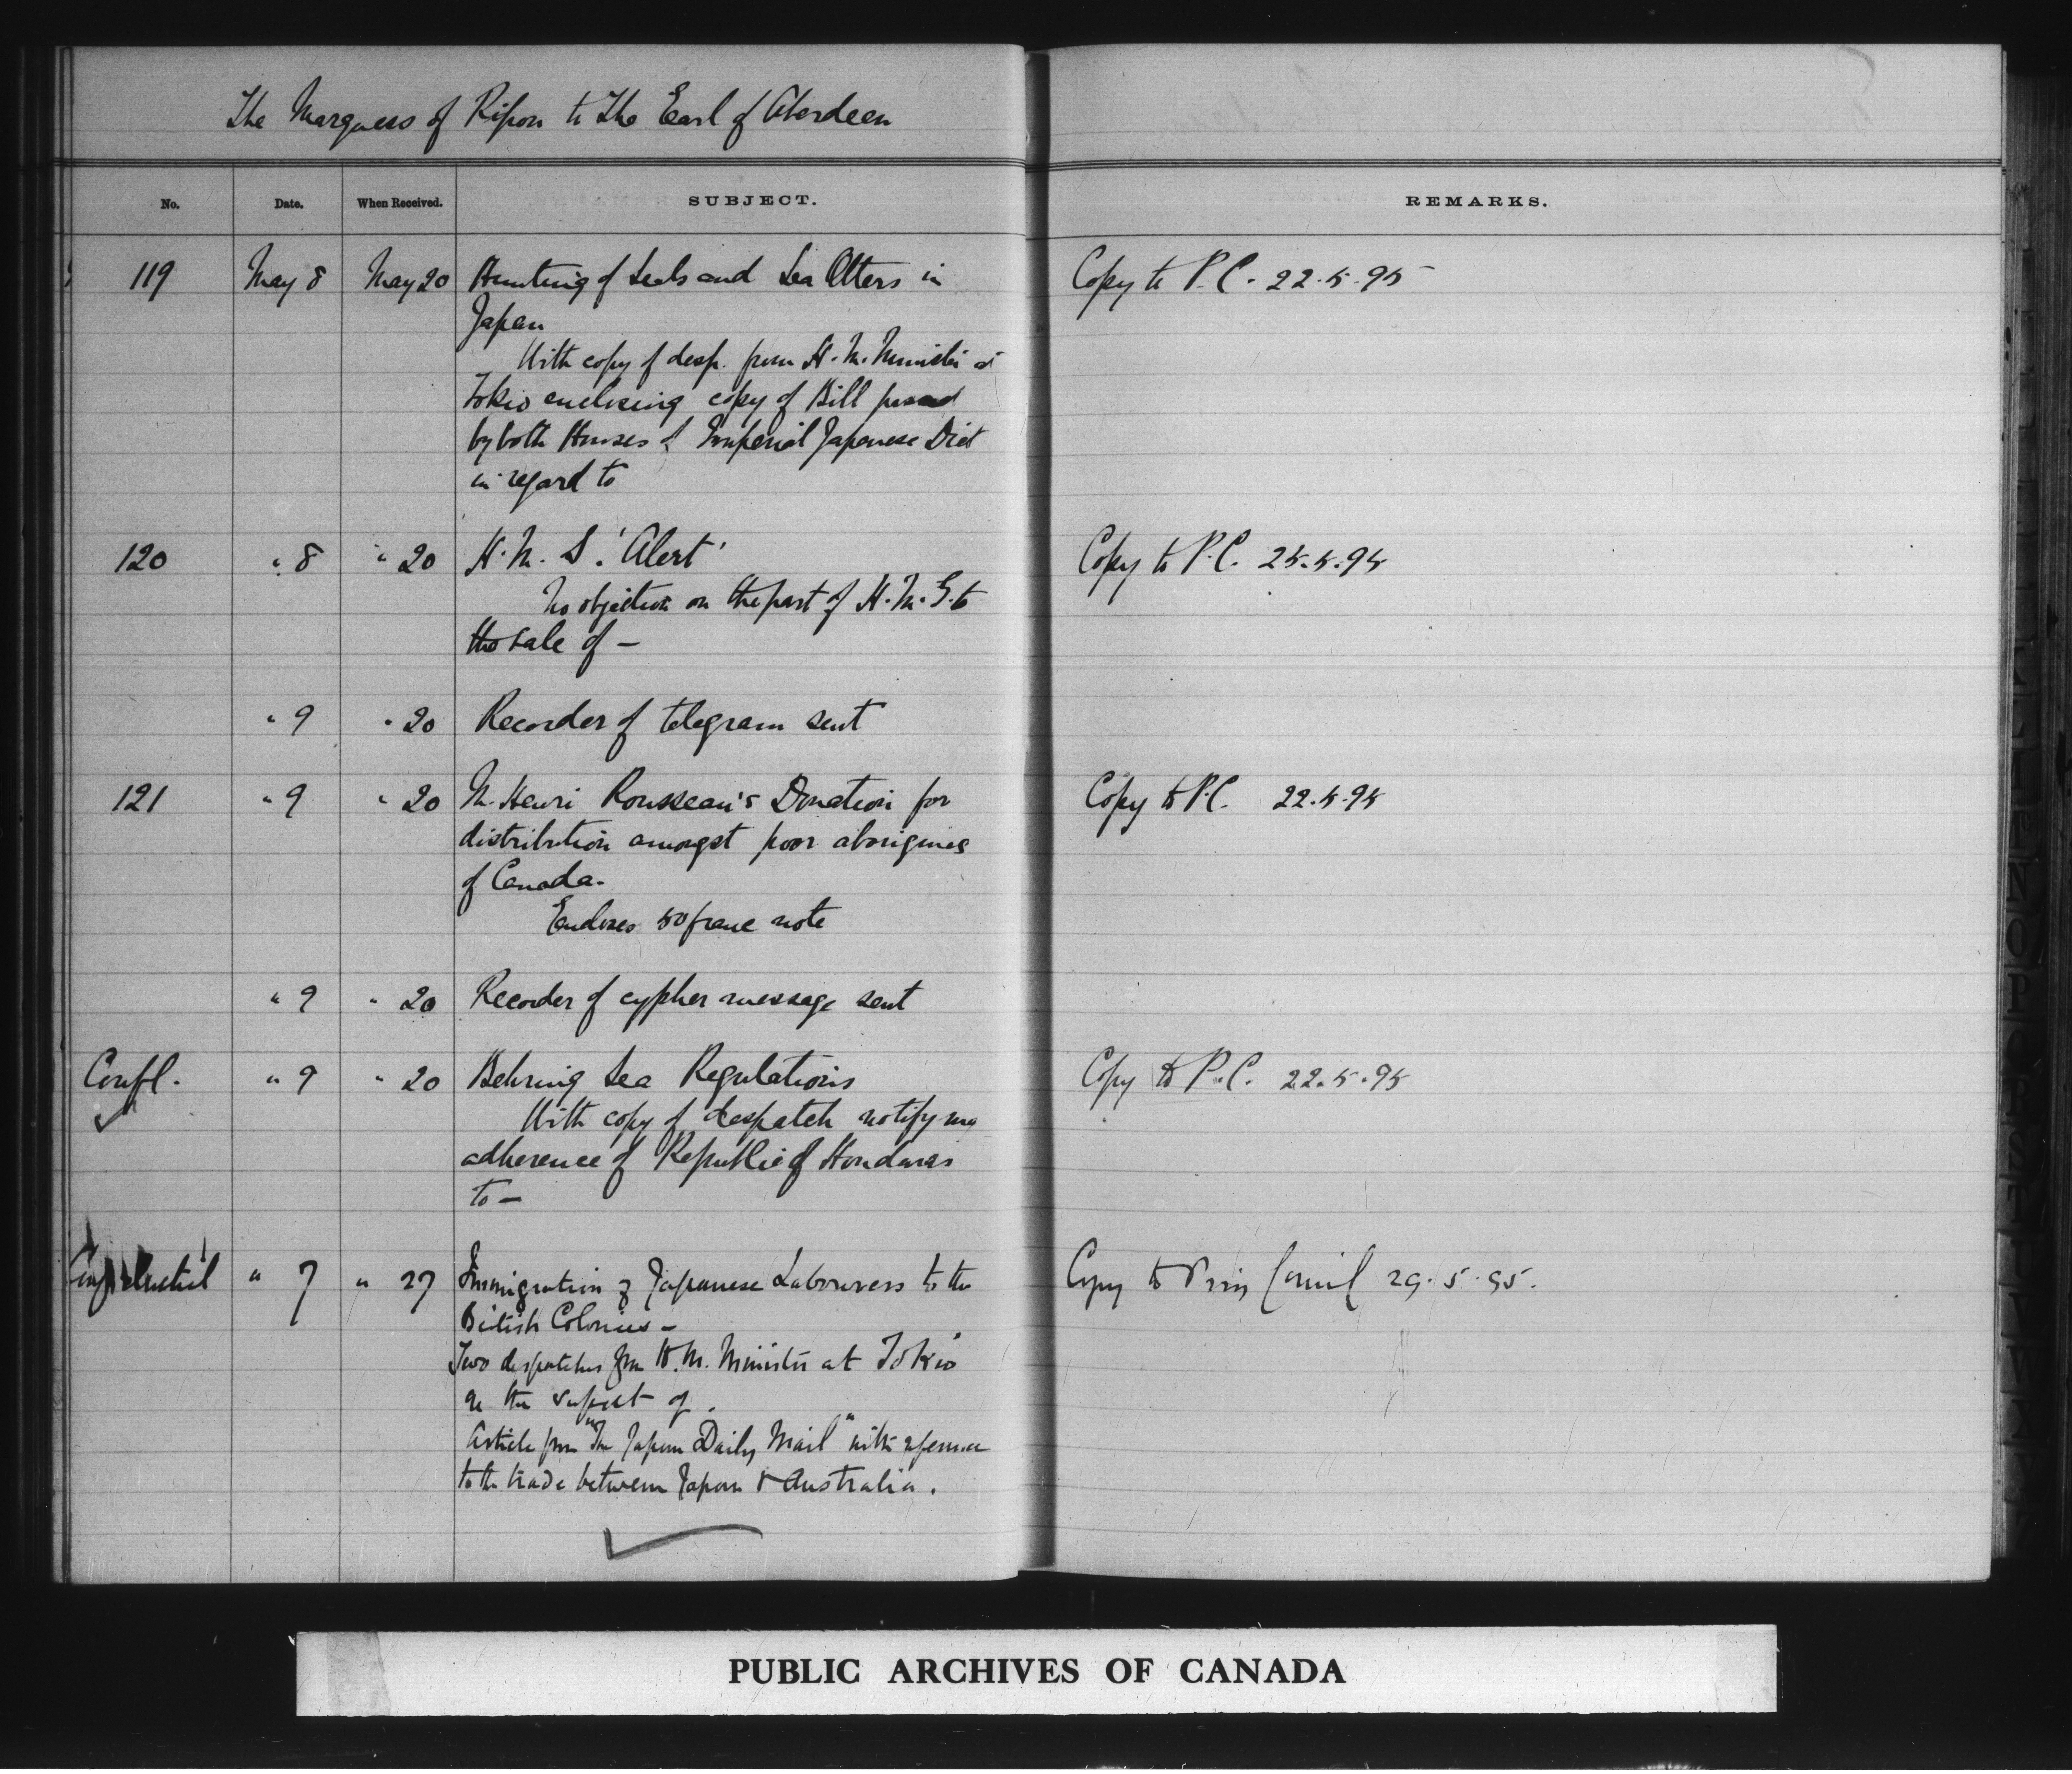 The Marquess of Ripon to The Earl of Aberdeen
No. Date. When Received. SUBJECT. REMARKS.
119 May 8 May 20 Hunting of Seals and Sea Otters in Copy to P.C. 22.5.95
Japan
With copy of desp. from H.M. Minister at
Tokio enclosing copy of Bill passed
by both Houses of Imperial Japanese Diet
in regard to
120 " 8 " 20 H.M.S. 'Alert' Copy to P.C. 25.5.95
No objection on the part of H.M.G. to
the sale of —
" 9 " 20 Recorder of telegram sent
121 " 9 " 20 M. Henri Rousseau's Donation for Copy to P.C. 22.5.95
distribution amongst poor aborigines
of Canada.
Encloses 50 franc note
" 9 " 20 Recorder of cypher message sent
Confl. " 9 " 20 Behring Sea Regulations Copy to P.C. 22.5.95
With copy of despatch notifying
adherence of Republic of Honduras
to —
Confidential " 7 " 27 Immigration of Japanese Labourers to the Copy to Priv Council 29.5.95.
British Colonies —
Two despatches from H.M. Minister at Tokio
on the subject of.
Article from "The Japan Daily Mail" with reference
to the trade between Japan & Australia.
PUBLIC ARCHIVES OF CANADA